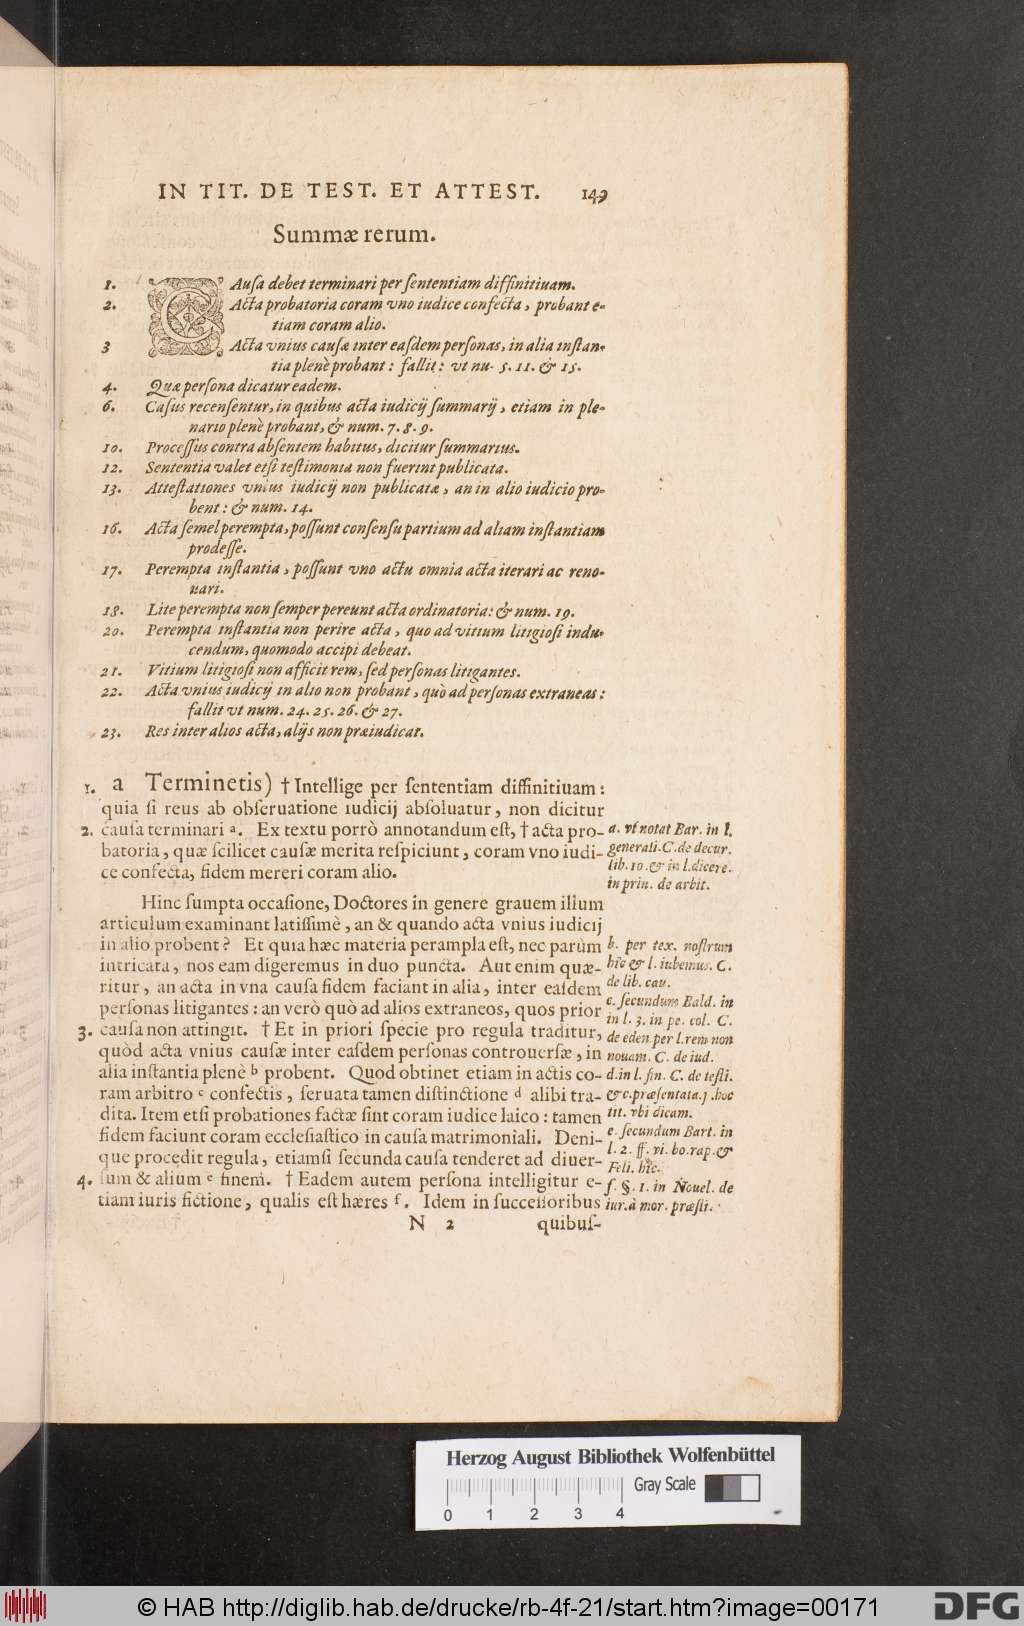 IN TIT. DE TEST. ET ATTEST. 149
Summæ rerum.
1. CAuſa debet terminari per ſententiam diffinitiuam.
2. Acta probatoria coram vno iudice confecta, probant e-
tiam coram alio.
3 Acta vnius cauſæ inter eaſdem perſonas, in alia inſtan-
tia plenè probant: fallit: vt nu. 5. 11. & 15.
4. Quæ perſona dicatur eadem.
6. Caſus recenſentur, in quibus acta iudicij ſummarij, etiam in ple-
nario plenè probant, & num. 7. 8. 9.
10. Proceſſus contra abſentem habitus, dicitur ſummarius.
12. Sententia valet etſi teſtimonia non fuerint publicata.
13. Atteſtationes vnius iudicij non publicatæ, an in alio iudicio pro-
bent: & num. 14.
16. Acta ſemel perempta, poſſunt conſenſu partium ad aliam inſtantiam
prodeſſe.
17. Perempta inſtantia, poſſunt vno actu omnia acta iterari ac reno-
uari.
18. Lite perempta non ſemper pereunt acta ordinatoria: & num. 19.
20. Perempta inſtantia non perire acta, quo ad vitium litigioſi indu-
cendum, quomodo accipi debeat.
21. Vitium litigioſi non afficit rem, ſed perſonas litigantes.
22. Acta vnius iudicij in alio non probant, quò ad perſonas extraneas:
fallit vt num. 24. 25. 26. & 27.
23. Res inter alios acta, alijs non præiudicat.
1. a Terminetis) † Intellige per ſententiam diffinitiuam:
quia ſi reus ab obſeruatione iudicij abſoluatur, non dicitur
2. cauſa terminari a. Ex textu porrò annotandum eſt, † acta pro-
batoria, quæ ſcilicet cauſæ merita reſpiciunt, coram vno iudi-
ce confecta, fidem mereri coram alio.
Hinc ſumpta occaſione, Doctores in genere grauem illum
articulum examinant latiſſimè, an & quando acta vnius iudicij
in alio probent? Et quia hæc materia perampla eſt, nec parùm
intricata, nos eam digeremus in duo puncta. Aut enim quæ-
ritur, an acta in vna cauſa fidem faciant in alia, inter eaſdem
perſonas litigantes: an verò quò ad alios extraneos, quos prior
3. cauſa non attingit. † Et in priori ſpecie pro regula traditur,
quòd acta vnius cauſæ inter eaſdem perſonas controuerſæ, in
alia inſtantia plenè b probent. Quod obtinet etiam in actis co-
ram arbitro c confectis, ſeruata tamen diſtinctione d alibi tra-
dita. Item etſi probationes factæ ſint coram iudice laico: tamen
fidem faciunt coram eccleſiaſtico in cauſa matrimoniali. Deni-
que procedit regula, etiamſi ſecunda cauſa tenderet ad diuer-
4. ſum & alium e finem. † Eadem autem perſona intelligitur e-
tiam iuris fictione, qualis eſt hæres f. Idem in ſucceſſoribus
N 2 quibuſ-
a. vt notat Bar. in l.
generali. C. de decur.
lib. 10. & in l. dicere.
in prin. de arbit.
b. per tex. noſtrum
hîc & l. iubemus. C.
de lib. cau.
c. ſecundum Bald. in
in l. 3. in pe. col. C.
de eden. per l. rem non
nouam. C. de iud.
d. in l. fin. C. de teſti.
& c. præſentata. j. hoc
tit. vbi dicam.
e. ſecundum Bart. in
l. 2. ff. vi. bo. rap. &
Feli. hîc.
f. §. 1. in Nouel. de
iur. à mor. præſti.
Herzog August Bibliothek Wolfenbüttel
Gray Scale
0 1 2 3 4
© HAB http://diglib.hab.de/drucke/rb-4f-21/start.htm?image=00171
DFG